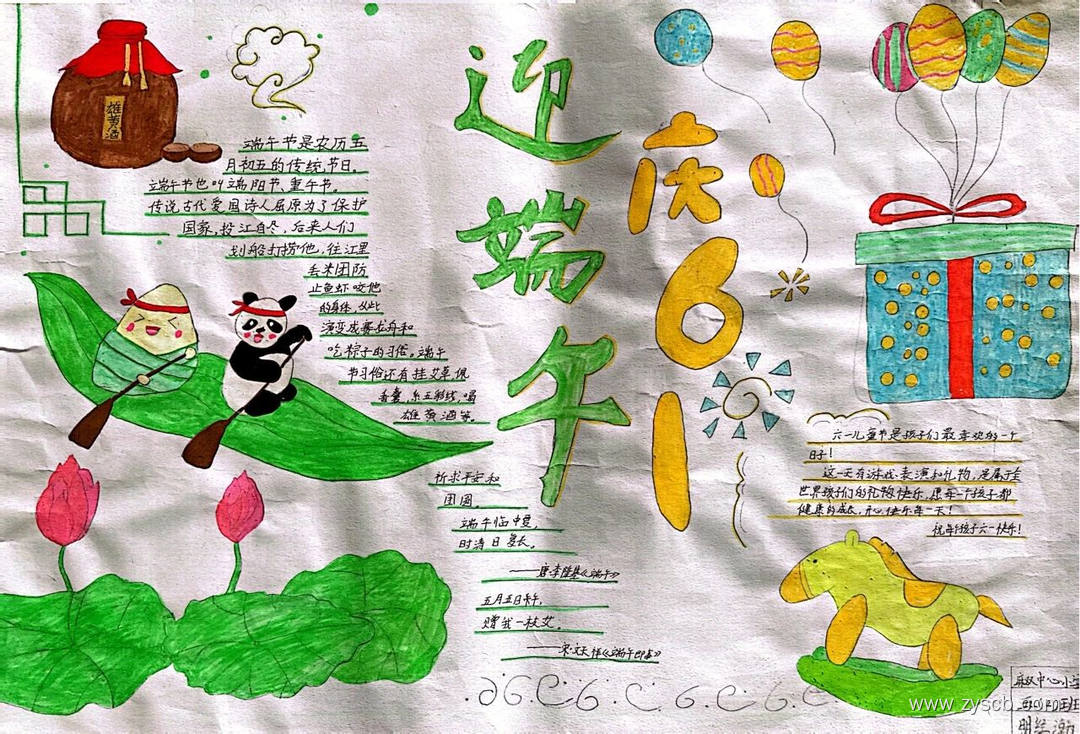 雄黄酒
迎端午
庆61
端午节是农历五
月初五的传统节日。
端午节也叫端阳节、重午节。
传说古代爱国诗人屈原为了保护
国家,投江自尽,后来人们
划船打捞他,往江里
丢米团防
止鱼虾咬他
的身体,从此
演变成赛龙舟和
吃粽子的习俗。端午
节习俗还有挂艾草、佩
香囊,系五彩线,喝
雄黄酒等。
祈求平安和
团圆。
端午临中夏,
时清日复长。
——唐·李隆基《端午》
五月五日午,
赠我一枝艾。
——宋·文天祥《端午即事》
六一儿童节是孩子们最喜欢的一个
日子!
这一天有游戏、表演和礼物,是属于全
世界孩子们的礼物和快乐,愿每一个孩子都
健康的成长,开心快乐每一天!
祝每个孩子六一快乐!
中心小学
班
www.zyscb.com